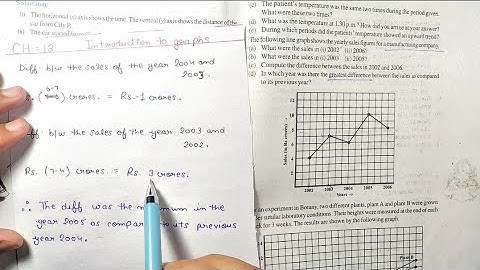 Solution:
(i) The horizontal (x) axis shows the time. The vertical (y) axis shows the distance of the
car from City P
(ii) The car started from
CH = 13 Introduction to graphs
Diff b/w the sales of the year 2004 and
2003.
6-7
crores. = Rs. -1 crores.
b/w the sales of the year 2003 and
2002.
Rs. (7-4) crores. = Rs. 3 crores.
∴ The diff was the in the
year 2005 as compare to its previous
year 2004.
(c) The patient's temperature was the same two times during the period given.
What were these two times?
(d) What was the temperature at 1.30 p.m.? How did you arrive at your answer?
(e) During which periods did the patients' temperature showed an upward trend?
The following line graph shows the yearly sales figures for a manufacturing company.
(a) What were the sales in (i) 2002 (ii) 2006?
(b) What were the sales in (i) 2003 (ii) 2005?
(c) Compute the difference between the sales in 2002 and 2006.
(d) In which year was there the greatest difference between the sales as compared
to its previous year?
Sales (in Rs crores)
12
10
8
6
4
2
0
2002 2003 2004 2005 2006
Years
an experiment in Botany, two different plants, plant A and plant B were grown
er similar laboratory conditions. Their heights were measured at the end of each
k for 3 weeks. The results are shown by the following graph.
Plant B